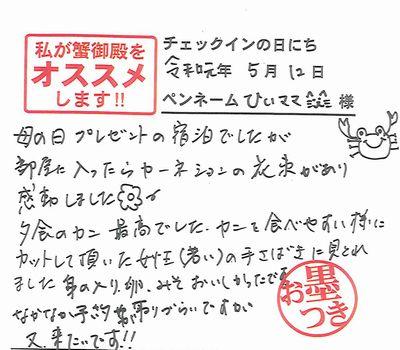 私が蟹御殿を
オススメ
します!!
チェックインの日にち
令和元年 5月12日
ペンネーム ひぃママ 様
母の日プレゼントの宿泊でしたが
部屋に入ったらカーネーションの花束があり
感動しました
夕食のカニ最高でした。カニを食べやすい様に
カットして頂いた女性(若い)の手さばきに見とれ
ました 身の入り、卵、みそおいしかったです
なかなか予約が取りづらいですが
又、来たいです!!
お墨
つき